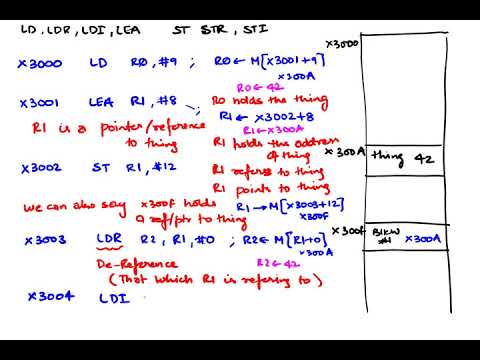 LD, LDR, LDI, LEA ST STR, STI
x3000
x3000 LD R0, #9 ; R0 ← M[x3001+9]
x300A
R0 ← 42
x3001 LEA R1, #8 ; R0 holds the thing
R1 ← x3002+8
R1 is a pointer/reference to thing
R1 ← x300A
R1 holds the address of thing
x300A thing 42
x3002 ST R1, #12 R1 refers to thing
R1 points to thing
we can also say x300F holds a ref/ptr to thing
R1 → M[x3003+12]
x300F
x300F Blkw #1 x300A
x3003 LDR R2, R1, #0 ; R2 ← M[R1+0]
x300A
De-Reference R2 ← 42
(That which R1 is refering to)
x3004 LDI